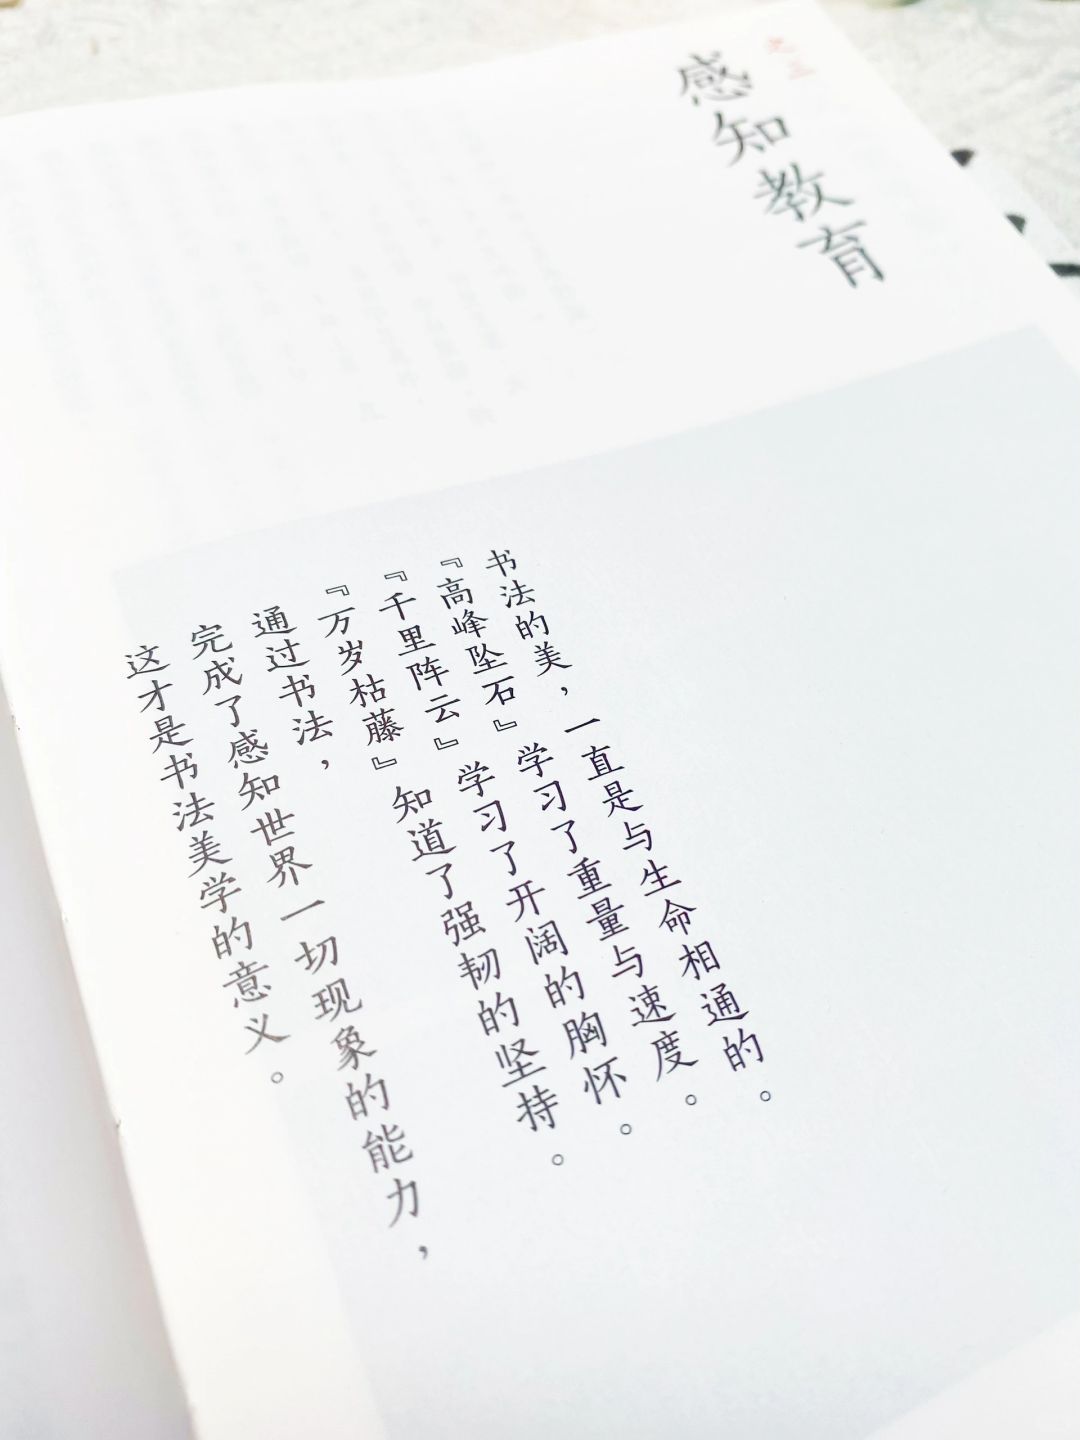 之三
感知教育
书法的美，一直是与生命相通的。
『高峰坠石』学习了重量与速度。
『千里阵云』学习了开阔的胸怀。
『万岁枯藤』知道了强韧的坚持。
通过书法，
完成了感知世界一切现象的能力，
这才是书法美学的意义。